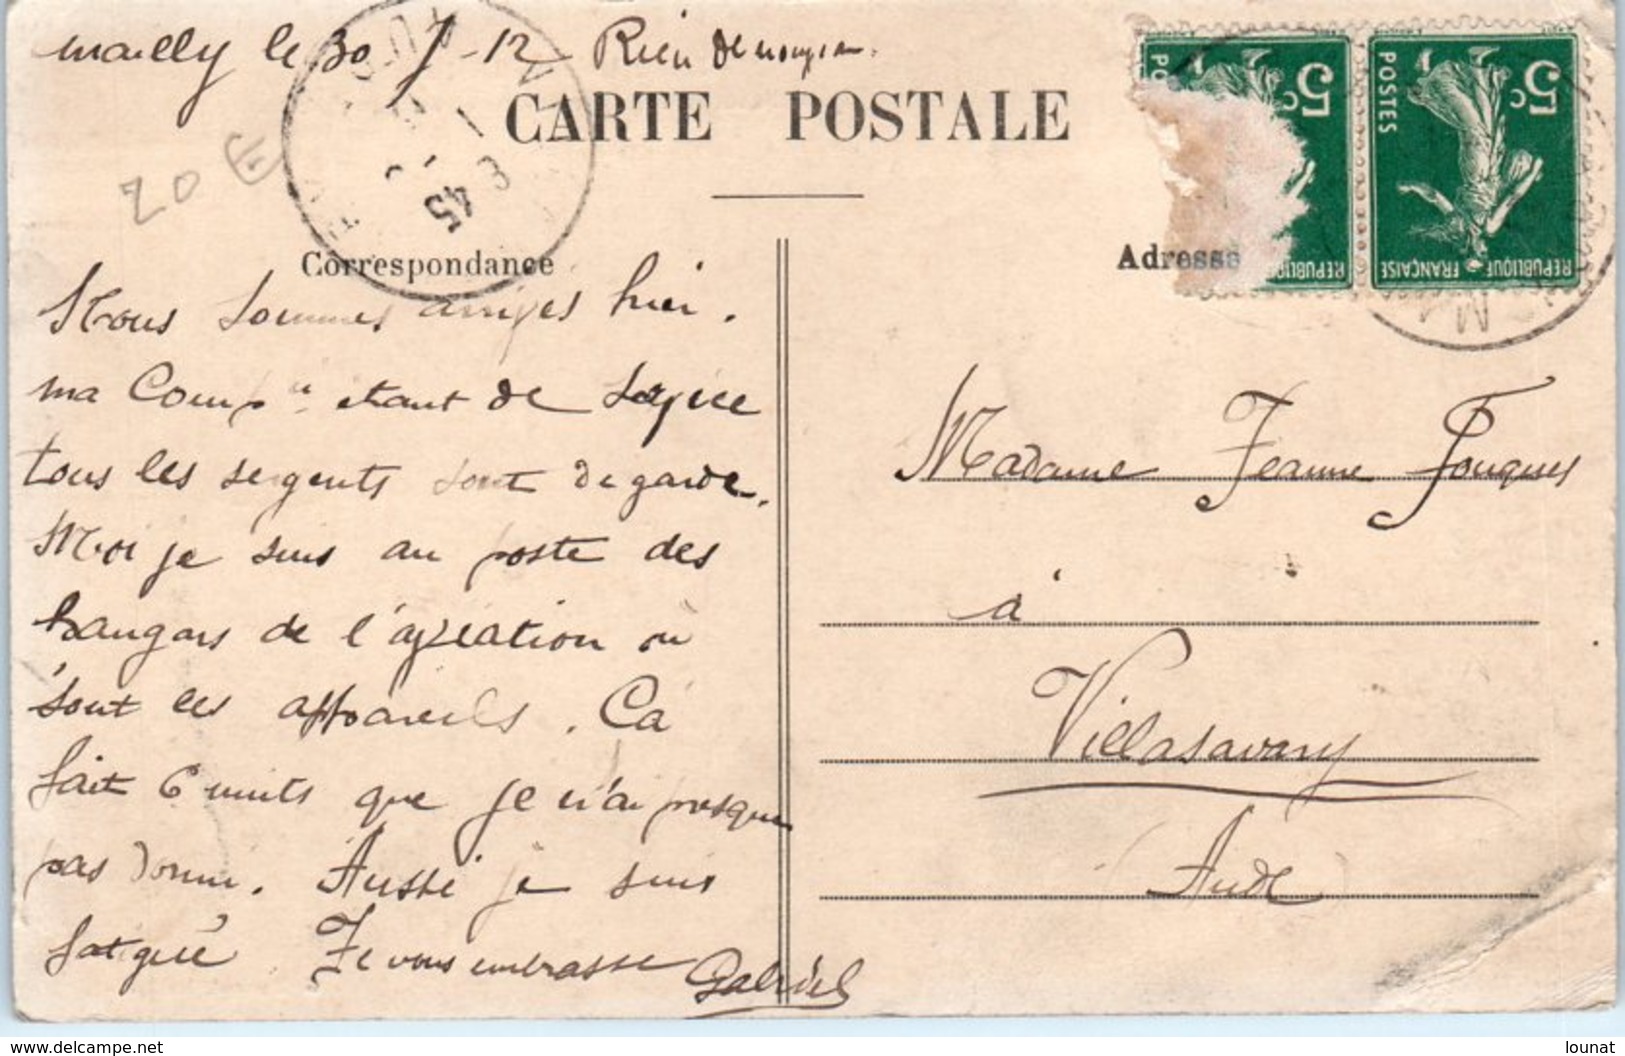 Mailly le 30-7-12 Rien de nouveau.
CARTE POSTALE
20 E
Correspondance
Adresse
POSTES
5c
5c
REPUBLIQUE
REPUBLIQUE FRANÇAISE
3
45
Nous sommes arrivés hier.
ma Comp ie étant de service
tous les sergents sont de garde.
Moi je suis au poste des
hangars de l'aviation où
sont les appareils. Ca
fait 6 nuits que je n'ai presque
pas dormi. Aussi je suis
fatigué Je vous embrasse Gabriel
Madame Jeanne Fouques
à
Villasavary
Aude
www.delcampe.net
lounat